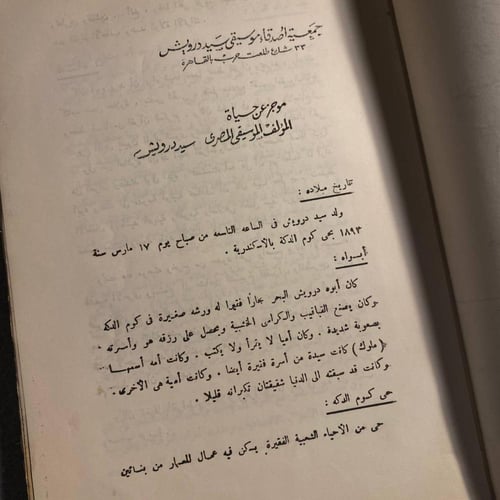 جمعية أصدقاء موسيقى سيد درويش
٣٣ شارع طلعت حرب بالقاهرة
موجز عن حياة
المؤلف الموسيقى المصرى سيد درويش
تاريخ ميلاده :
ولد سيد درويش فى الساعه التاسعه من صباح يوم ١٧ مارس سنة
١٨٩٣ بحى كوم الدكة بالاسكندرية .
أبواه :
كان أبوه درويش البحر نجارا فقيرا له ورشه صغيرة فى كوم الدكة
وكان يصنع القباقيب والكراسى الخشبية ويحصل على رزقه هو وأسرته
بصعوبة شديدة . وكان أميا لا يقرأ ولا يكتب . وكانت أمه أسمها
(ملوك) كانت سيدة من أسرة فقيرة أيضا . وكانت أمية هى الأخرى .
وكانت قد سبقته الى الدنيا شقيقتان تكبرانه قليلا .
حى كوم الدكه :
حى من الأحياء الشعبية الفقيرة يسكن فيه عمال للمعمار من بنائين